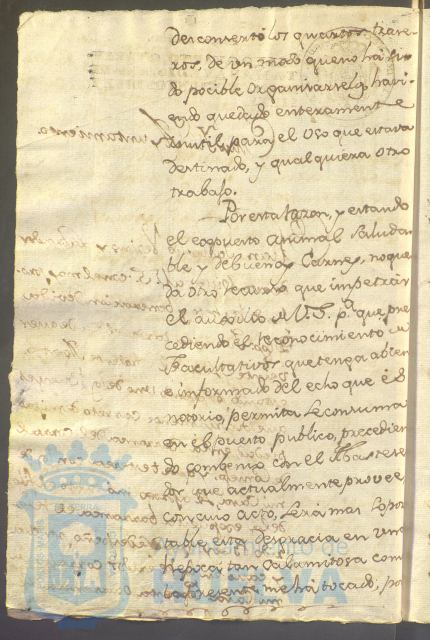 desconsertó los quartos trase-
ros, de un modo que no há si-
do pocible organizarselos, havi-
endo quedado enteramente
inutil para el uso que estava
destinado, y qualquiera otro
trabajo.
Por esta razon, y estando
el expuesto animal saludа-
ble y de buenas carnes, no que-
da otro recurso que impetrar
el auxilio de V.S. pª que pre-
cediendo el reconocimiento de
Facultativos que tenga a bien
é informado del echo que és
notorio, permita se consuma
en el puesto publico, precedien-
do combenio con el Abastese-
dor que actualmente provee
con cuio acto, será mas sopor-
table esta desgracia en una
epoca tan calamitosa como
la presente me há tocado, po
Ayuntamiento de